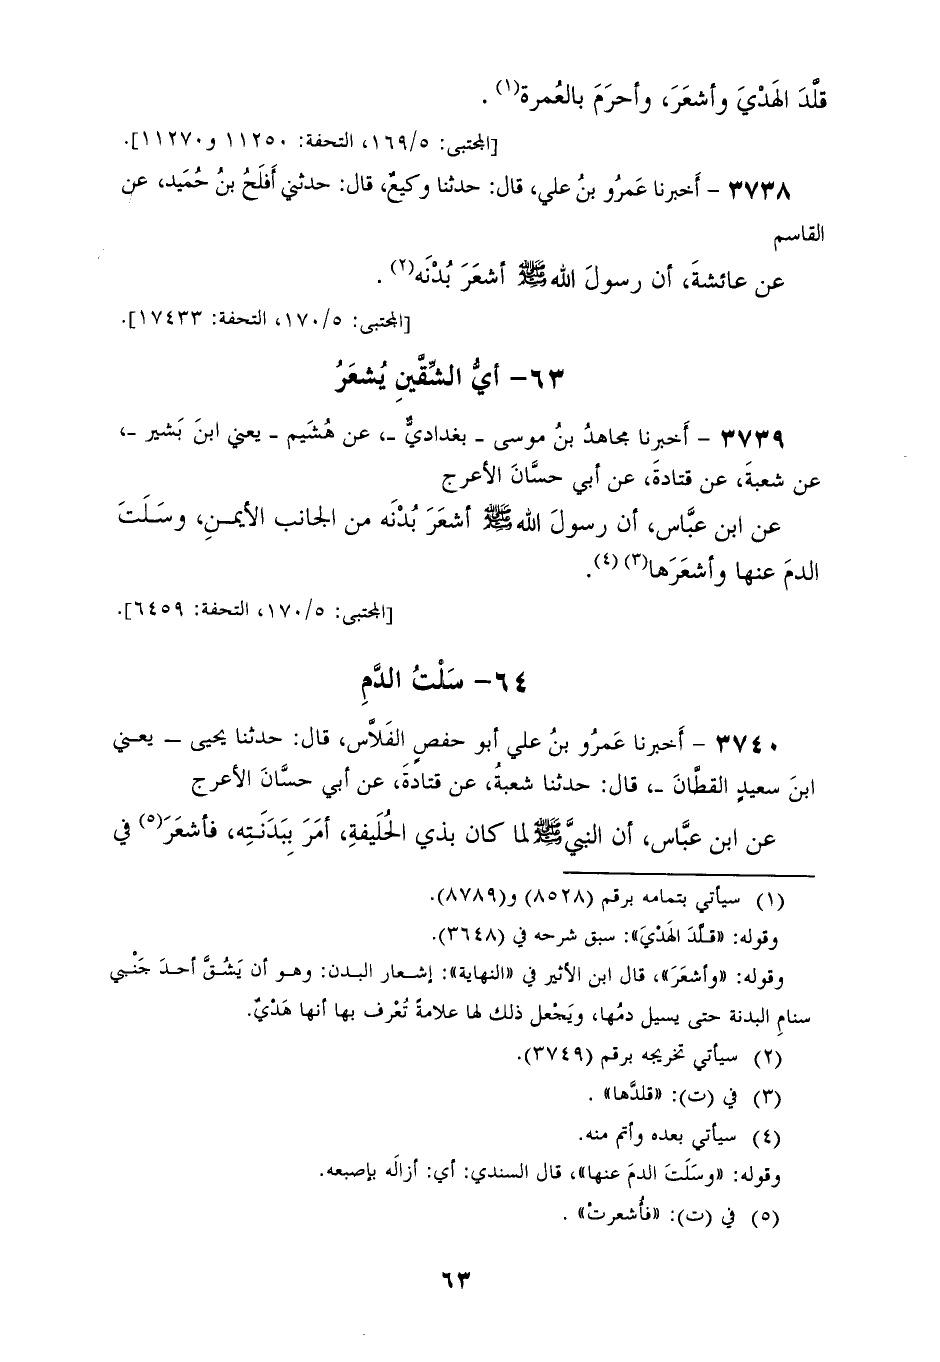 قلَّدَ الهَدْيَ وأشعَرَ، وأحرَمَ بالعُمرة(١) .
[المجتبى: ١٦٩/٥، التحفة: ١١٢٥٠ و١١٢٧٠].
٣٧٣٨ - أَخبرنا عَمرُو بنُ علي، قال: حدثنا وكيعٌ، قال: حدثني أَفلَحُ بنُ حُمَيد، عن
القاسم
عن عائشةَ، أن رسولَ اللهﷺ أشعَرَ بُدْنَه(٢) .
[المجتبى: ١٧٠/٥، التحفة: ١٧٤٣٣].
٦٣- أيُّ الشِّقَّينِ يُشعَرُ
٣٧٣٩ - أَخبرنا مجاهدُ بنُ موسى - بغداديٌّ -، عن هُشَيم - يعني ابنَ بَشير -،
عن شعبةَ، عن قتادةَ، عن أبي حسَّانَ الأعرج
عن ابن عبَّاس، أن رسولَ اللهﷺ أشعَرَ بُدْنَه من الجانب الأيمنِ، وسَلَتَ
الدمَ عنها وأشعَرَها(٣)(٤).
[المجتبى: ١٧٠/٥، التحفة: ٦٤٥٩].
٦٤- سَلْتُ الدَّمِ
٣٧٤٠ - أَخبرنا عَمرُو بنُ علي أبو حفصٍ الفَلاَّس، قال: حدثنا يحيى – يعني
ابنَ سعيدٍ القطَّانَ -، قال: حدثنا شعبةُ، عن قتادةَ، عن أبي حسَّانَ الأعرج
عن ابن عبَّاس، أن النبيَّﷺ لما كان بذي الحُلَيفةِ، أمَرَ بِبَدَنَتِه، فأشعَرَ(٥) في
(١) سيأتي بتمامه برقم (٨٥٢٨) و(٨٧٨٩).
وقوله: «قلَّدَ الهَدْيَ»: سبق شرحه في (٣٦٤٨).
وقوله: «وأشعَرَ»، قال ابن الأثير في «النهاية»: إشعار البدن: وهو أن يَشُقَّ أحدَ جَنْبي
سنامِ البدنة حتى يسيل دمُها، ويَجْعل ذلك لها علامةً تُعْرف بها أنها هَدْيٌ.
(٢) سيأتي تخريجه برقم (٣٧٤٩).
(٣) في (ت): «قلدَّها» .
(٤) سيأتي بعده وأتم منه.
وقوله: «وسَلَتَ الدمَ عنها»، قال السندي: أي: أزالَه بإصبعه.
(٥) في (ت): «فأُشعرتْ» .
٦٣